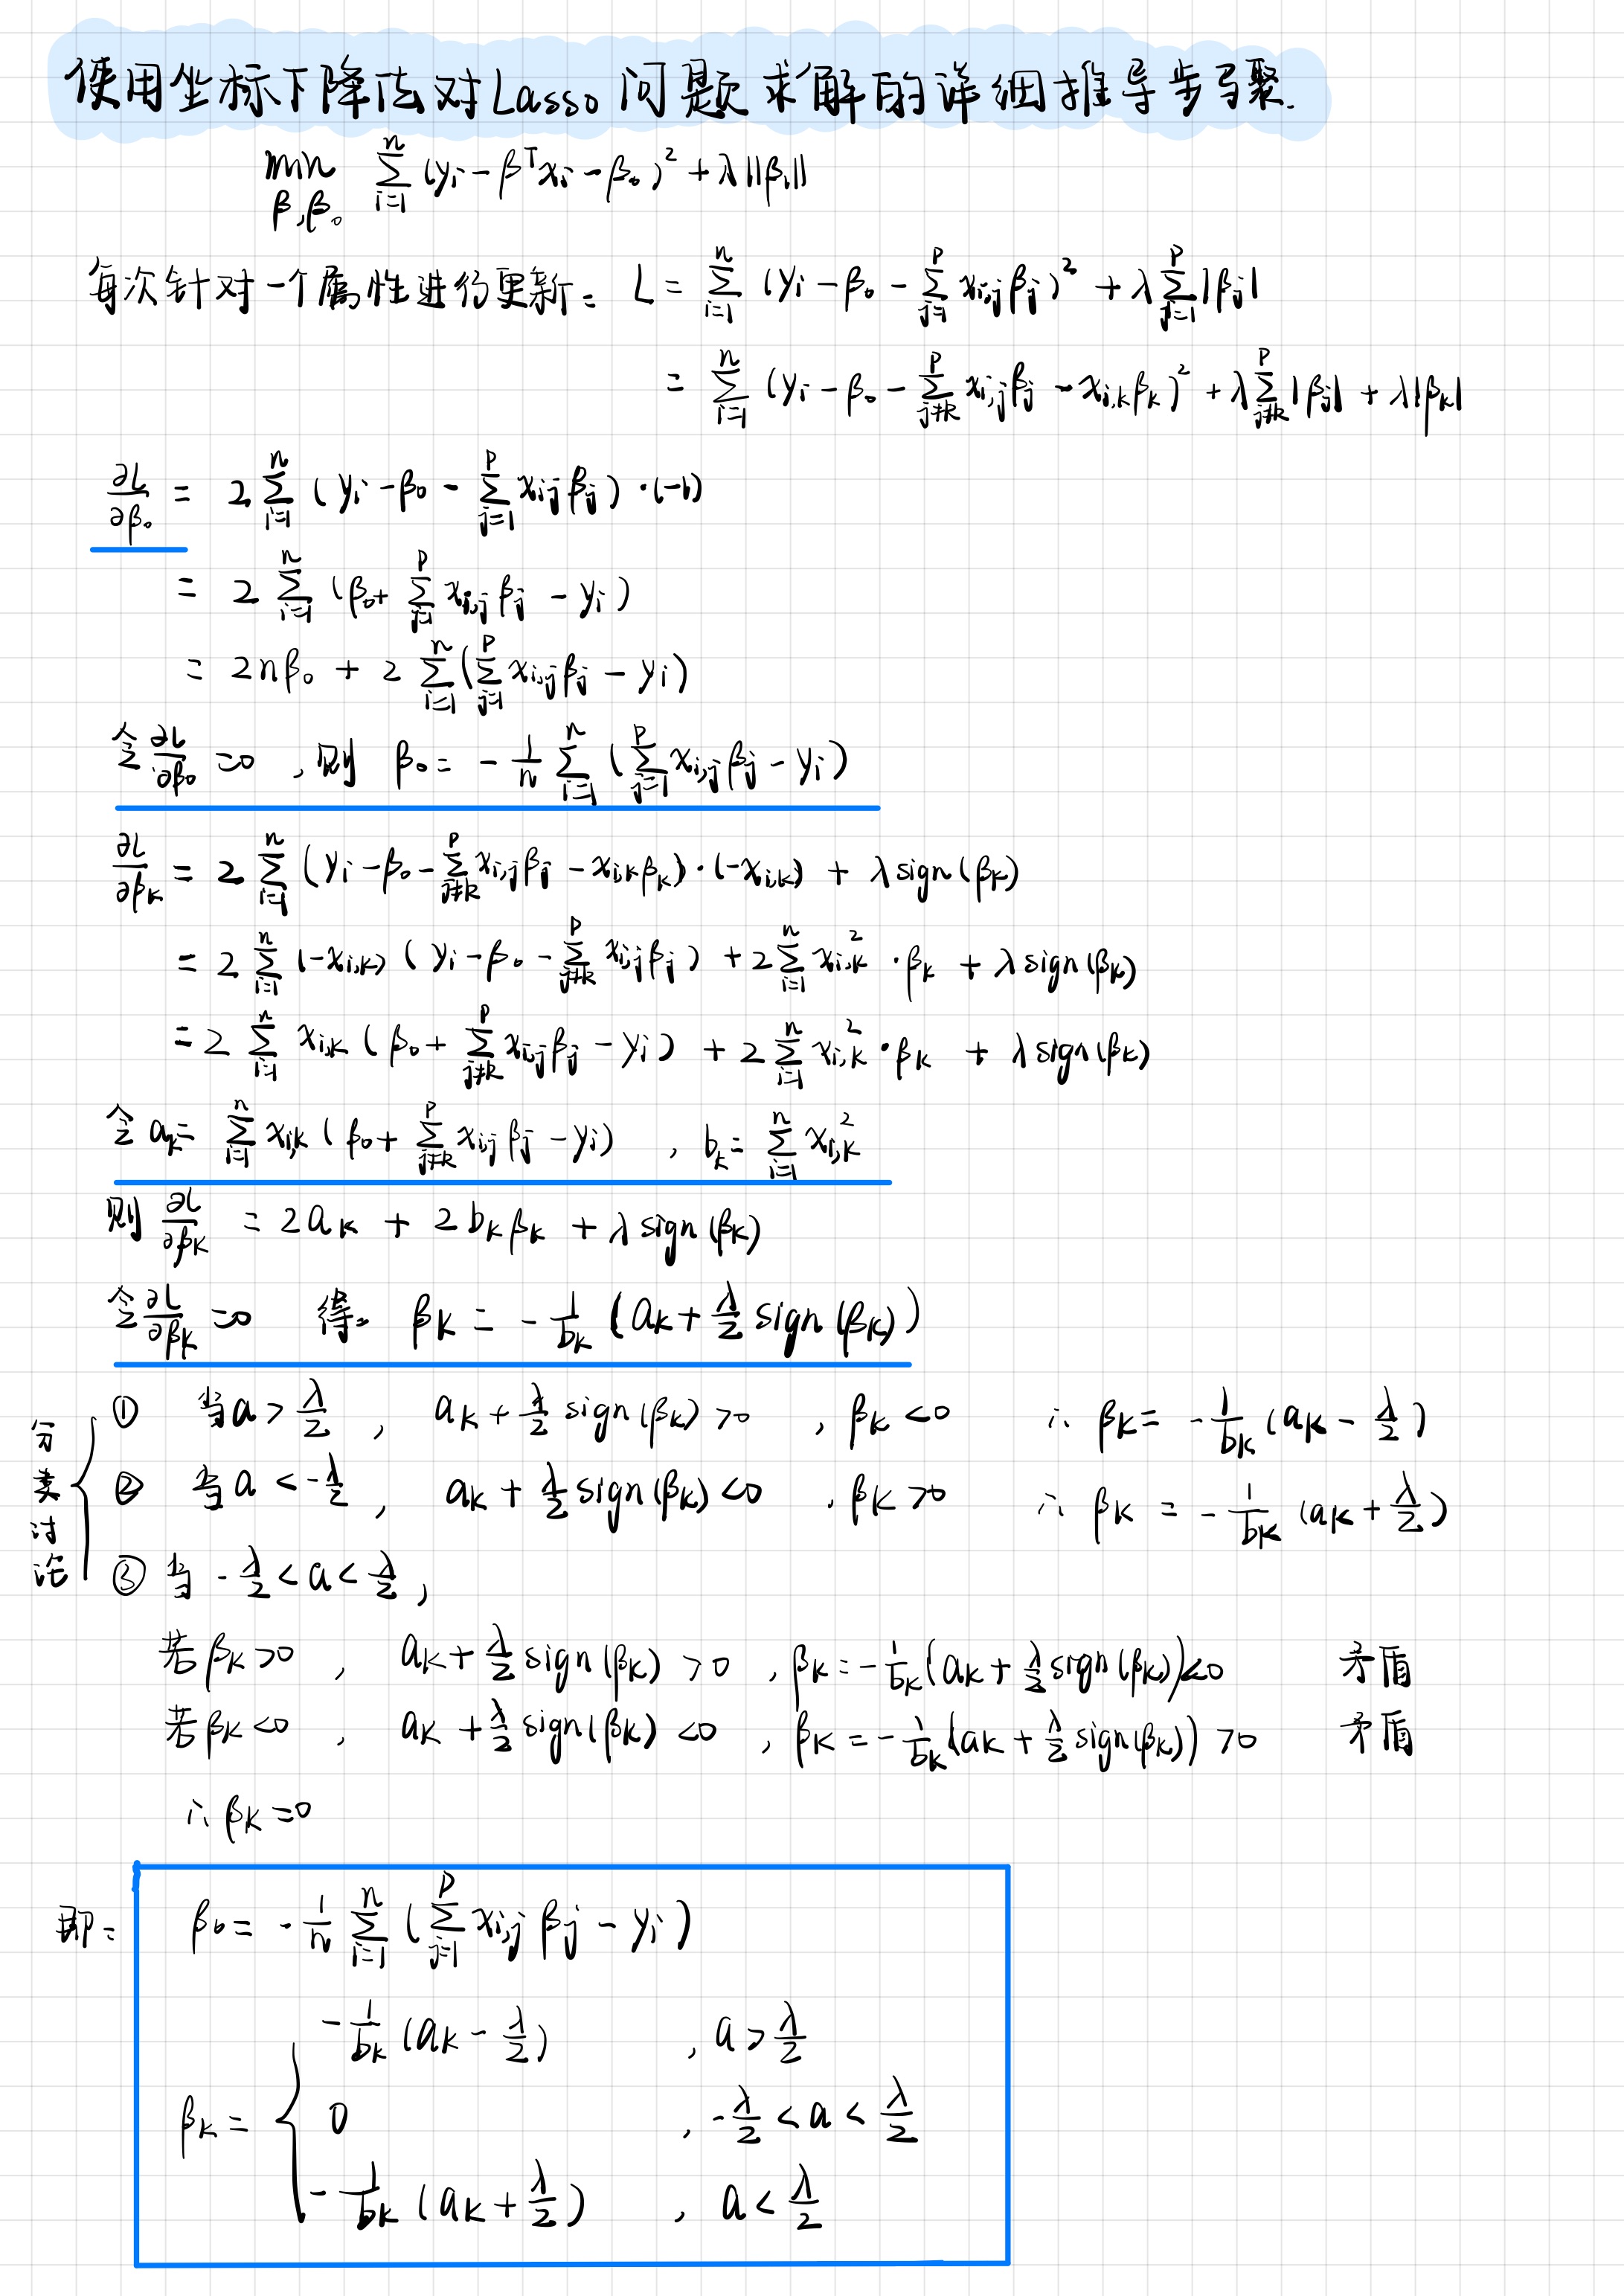 使用坐标下降法对Lasso问题求解的详细推导步骤.
min_{β,β₀} ∑_{i=1}^{n} (yᵢ - βᵀxᵢ - β₀)² + λ||β||
每次针对一个属性进行更新: L = ∑_{i=1}^{n} (yᵢ - β₀ - ∑_{j=1}^{p} x_{i,j}β_j)² + λ∑_{j=1}^{p}|β_j|
= ∑_{i=1}^{n} (yᵢ - β₀ - ∑_{j≠k}^{p} x_{i,j}β_j - x_{i,k}β_k)² + λ∑_{j≠k}^{p}|β_j| + λ|β_k|
∂L/∂β₀ = 2∑_{i=1}^{n} (yᵢ - β₀ - ∑_{j=1}^{p} x_{ij}β_j)·(-1)
= 2∑_{i=1}^{n} (β₀ + ∑_{j=1}^{p} x_{i,j}β_j - yᵢ)
= 2nβ₀ + 2∑_{i=1}^{n} (∑_{j=1}^{p} x_{i,j}β_j - yᵢ)
令 ∂L/∂β₀ = 0 , 则 β₀ = -1/n ∑_{i=1}^{n} (∑_{j=1}^{p} x_{i,j}β_j - yᵢ)
∂L/∂β_k = 2∑_{i=1}^{n} (yᵢ - β₀ - ∑_{j≠k}^{p} x_{i,j}β_j - x_{i,k}β_k)·(-x_{i,k}) + λsign(β_k)
= 2∑_{i=1}^{n} (-x_{i,k}) (yᵢ - β₀ - ∑_{j≠k}^{p} x_{i,j}β_j) + 2∑_{i=1}^{n} x_{i,k}²·β_k + λsign(β_k)
= 2∑_{i=1}^{n} x_{i,k} (β₀ + ∑_{j≠k}^{p} x_{i,j}β_j - yᵢ) + 2∑_{i=1}^{n} x_{i,k}²·β_k + λsign(β_k)
令 a_k = ∑_{i=1}^{n} x_{i,k} (β₀ + ∑_{j≠k}^{p} x_{i,j}β_j - yᵢ) , b_k = ∑_{i=1}^{n} x_{i,k}²
则 ∂L/∂β_k = 2a_k + 2b_kβ_k + λsign(β_k)
令 ∂L/∂β_k = 0 得: β_k = -1/b_k (a_k + λ/2 sign(β_k))
分类讨论
① 当a > λ/2 , a_k + λ/2 sign(β_k) > 0 , β_k < 0 ∴ β_k = -1/b_k (a_k - λ/2)
② 当a < -λ/2 , a_k + λ/2 sign(β_k) < 0 , β_k > 0 ∴ β_k = -1/b_k (a_k + λ/2)
③ 当 -λ/2 < a < λ/2 ,
若β_k > 0 , a_k + λ/2 sign(β_k) > 0 , β_k = -1/b_k (a_k + λ/2 sign(β_k)) < 0 矛盾
若β_k < 0 , a_k + λ/2 sign(β_k) < 0 , β_k = -1/b_k (a_k + λ/2 sign(β_k)) > 0 矛盾
∴ β_k = 0
即: β₀ = -1/n ∑_{i=1}^{n} (∑_{j=1}^{p} x_{i,j}β_j - yᵢ)
β_k = { -1/b_k (a_k - λ/2) , a > λ/2
0 , -λ/2 < a < λ/2
-1/b_k (a_k + λ/2) , a < λ/2